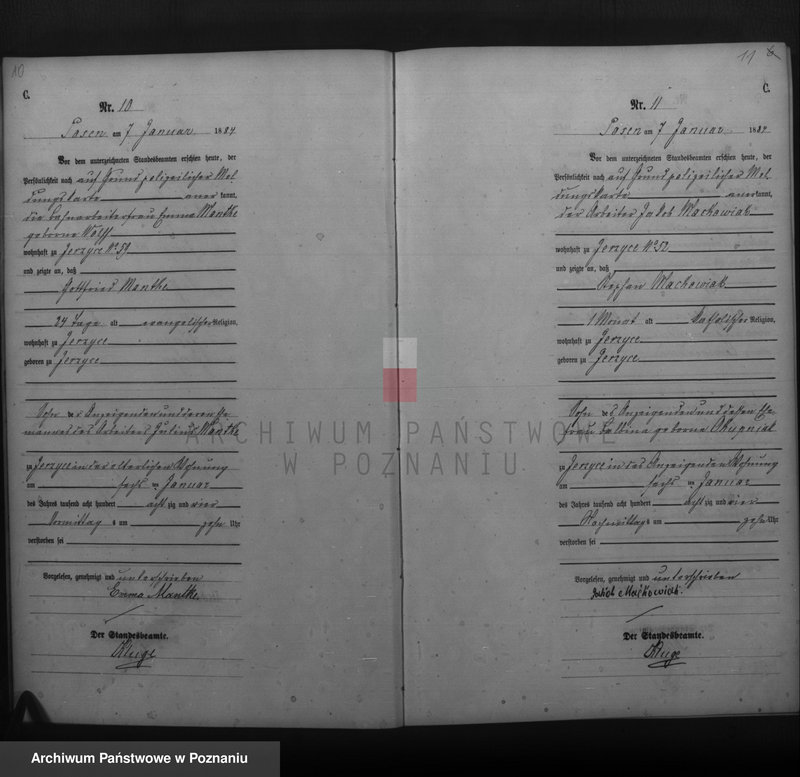 10
C.
Nr. 10
Posen am 7 Januar 1884
Vor dem unterzeichneten Standesbeamten erschien heute, der
Persönlichkeit nach auf Grund polizeilicher Mel
dungskarte anerkannt,
die Bahnarbeiterfrau Emma Manthe
geborne Wolff
wohnhaft zu Jerzyce No 59
und zeigte an, daß
Gottfried Manthe
24 Tage alt evangelischer Religion,
wohnhaft zu Jerzyce
geboren zu Jerzyce
Sohn der Anzeigenden und deren Ehe
mannes des Arbeiters Julius Manthe
zu Jerzyce in der elterlichen Wohnung
am sechs ten Januar
des Jahres tausend acht hundert acht zig und vier
Vormittag s um zehn Uhr
verstorben sei
Vorgelesen, genehmigt und unterschrieben
Emma Manthe
Der Standesbeamte.
Kluge
11
C.
Nr. 11
Posen am 7 Januar 1884
Vor dem unterzeichneten Standesbeamten erschien heute, der
Persönlichkeit nach auf Grund polizeilicher Mel
dungskarte anerkannt,
der Arbeiter Jakob Maćkowiak
wohnhaft zu Jerzyce No 52
und zeigte an, daß
Stephan Maćkowiak
1 Monat alt katholischer Religion,
wohnhaft zu Jerzyce
geboren zu Jerzyce
Sohn des Anzeigenden und dessen Ehe
frau geborne Chupniak
zu Jerzyce in des Anzeigenden Wohnung
am sechs ten Januar
des Jahres tausend acht hundert acht zig und vier
Nachmittag s um zehn Uhr
verstorben sei
Vorgelesen, genehmigt und unterschrieben
Jakob Maćkowiak.
Der Standesbeamte.
Kluge
ARCHIWUM PAŃSTWOWE
W POZNANIU
Archiwum Państwowe w Poznaniu